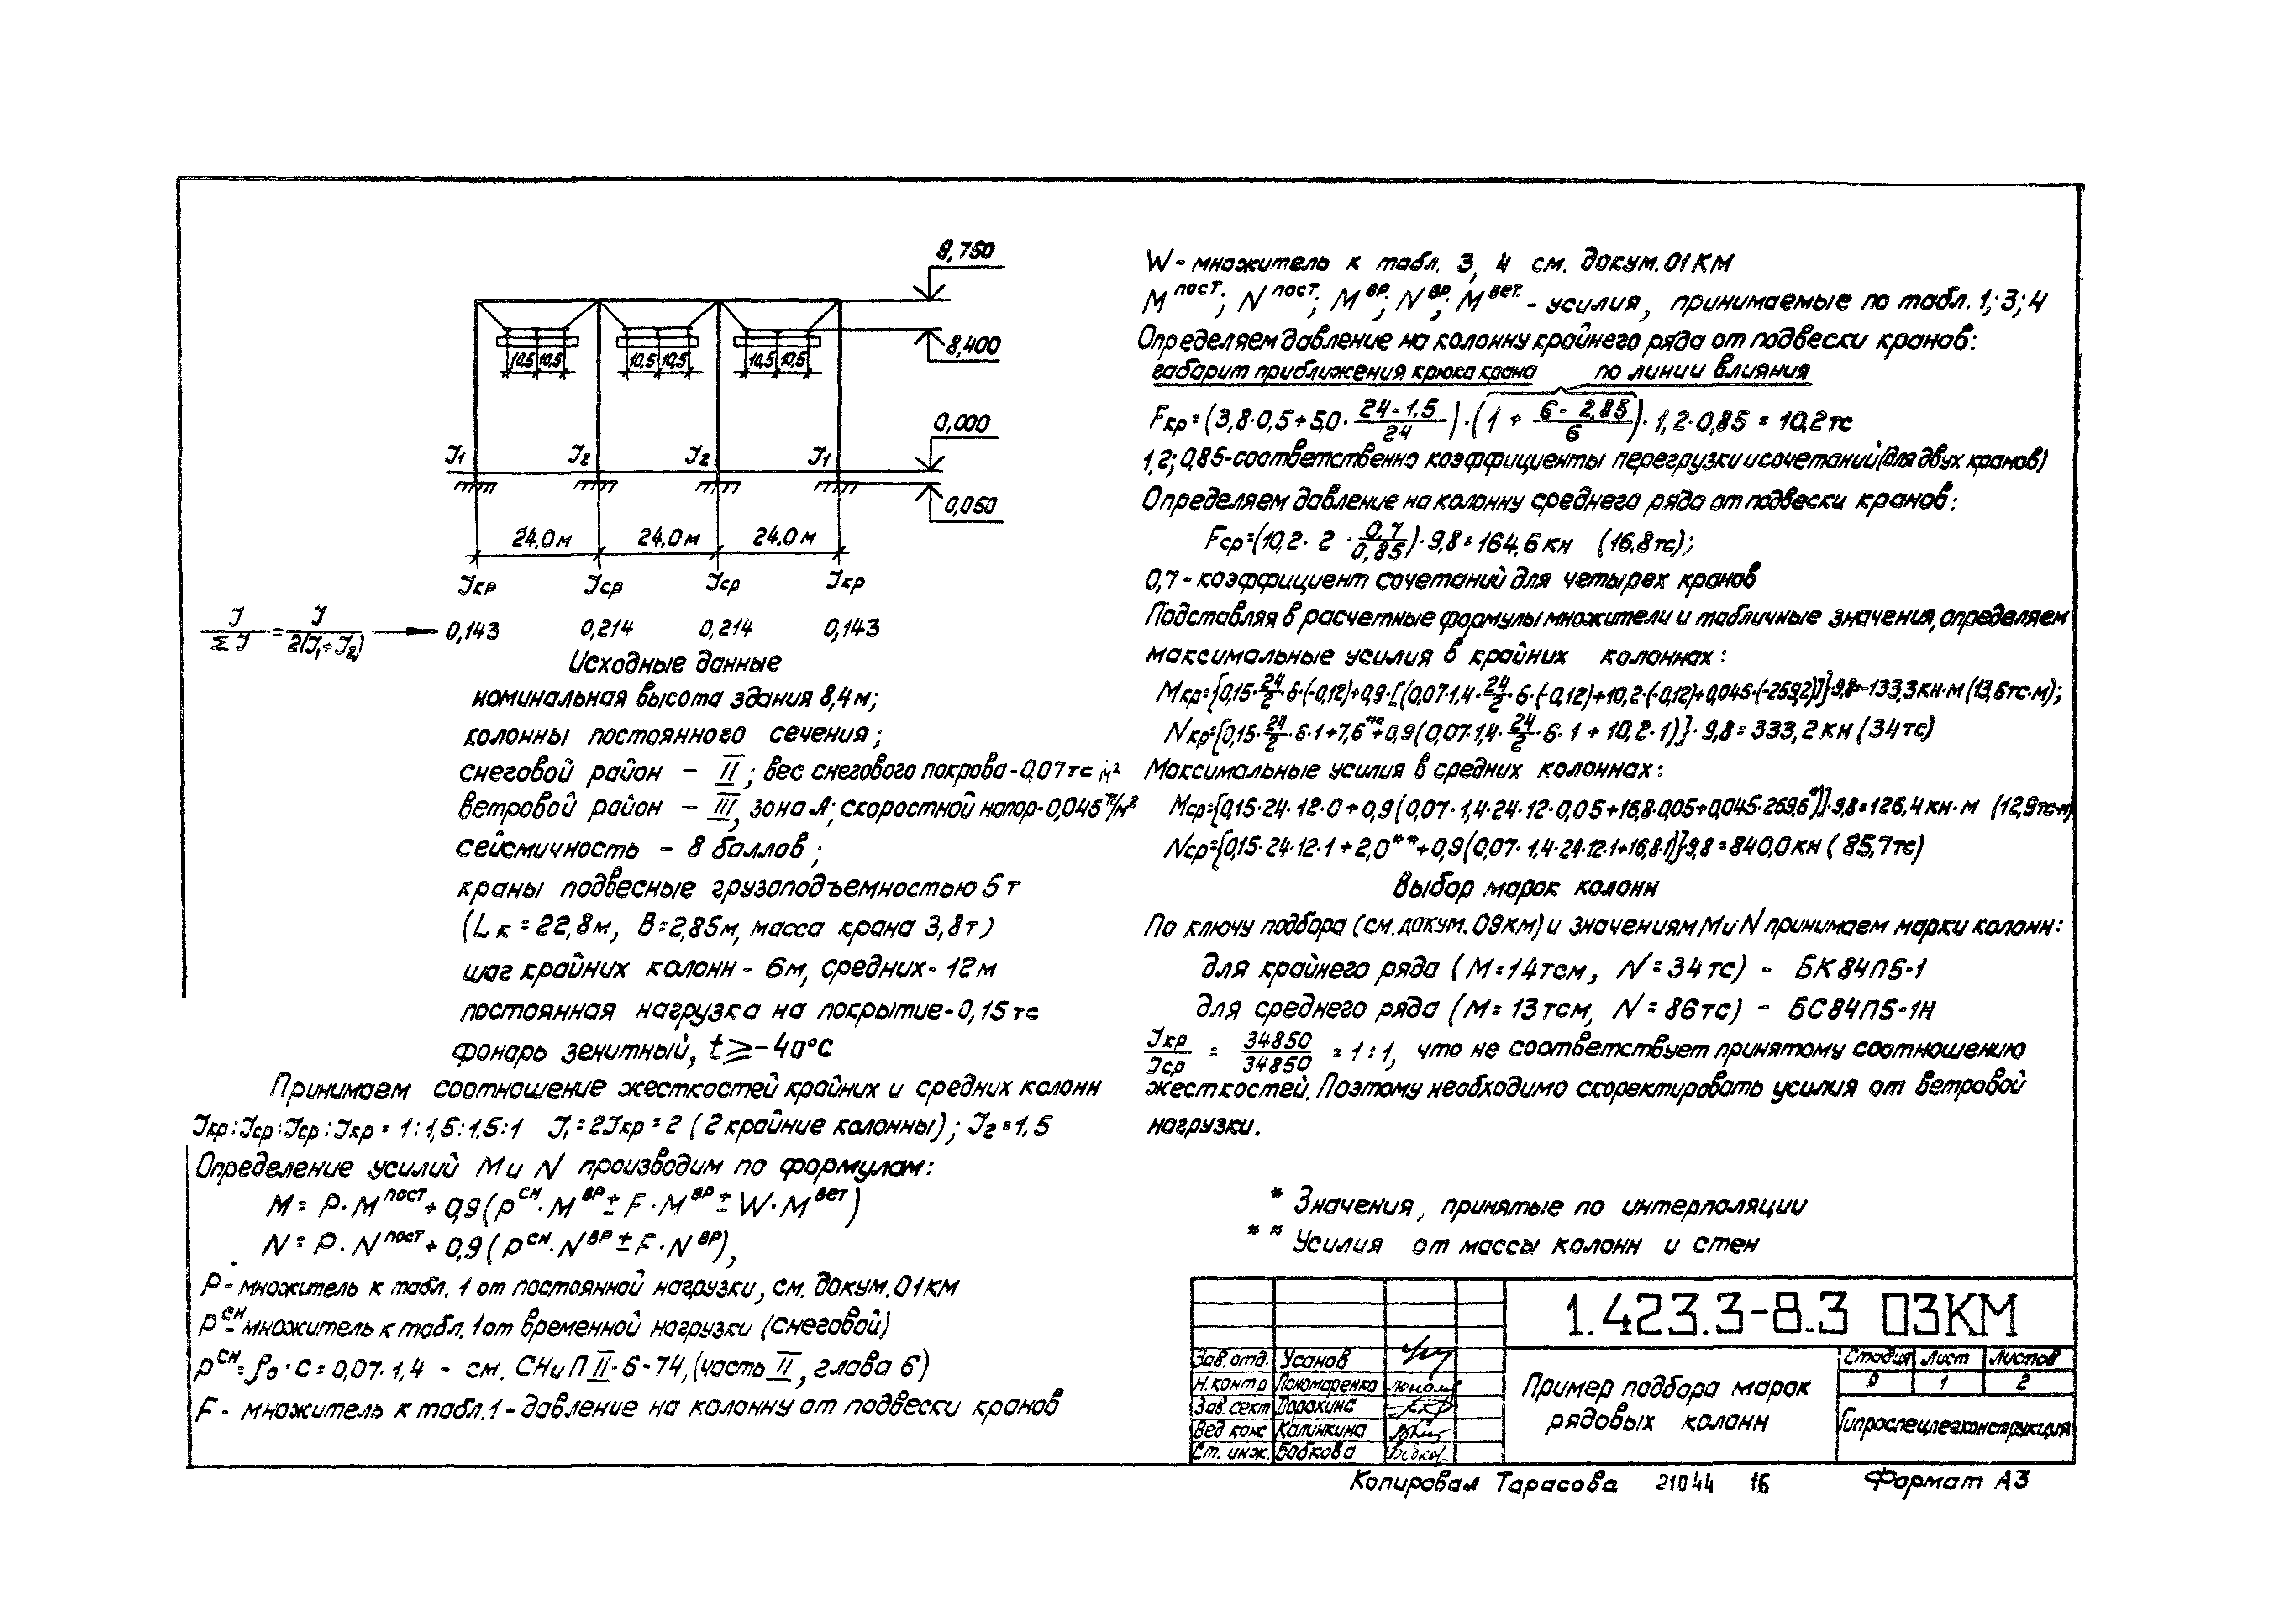 9,750
8,400
10,5 10,5 10,5 10,5 10,5 10,5
0,000
J1 J2 J2 J1
0,050
24,0м 24,0м 24.0м
Jкр Jср Jср Jкр
J/ΣJ = J/2(J1+J2) → 0,143 0,214 0,214 0,143
Исходные данные
номинальная высота здания 8,4м;
колонны постоянного сечения;
снеговой район – II; вес снегового покрова-0,07тс/м²
ветровой район – III, зона А; скоростной напор-0,045тс/м²
сейсмичность – 8 баллов;
краны подвесные грузоподъемностью 5т
(Lк=22,8м, В=2,85м, масса крана 3,8т)
шаг крайних колонн - 6м, средних- 12м
постоянная нагрузка на покрытие-0,15тс
фонарь зенитный, t⩾-40°С
Принимаем соотношение жесткостей крайних и средних колонн
Jкр:Jср:Jср:Jкр = 1:1,5:1,5:1 J1=2Jкр=2 (2 крайние колонны); J2=1,5
Определение усилий М и N производим по формулам:
М = Р·М^пост+0,9(Р^сн·М^вр±F·М^вр±W·М^вет)
N = Р·N^пост+0,9(Р^сн·N^вр±F·N^вр),
Р- множитель к табл. 1 от постоянной нагрузки, см. докум.01КМ
Р^сн- множитель к табл.1 от временной нагрузки (снеговой)
Р^сн=ρ0·с=0,07·1,4 - см. СНиП II-6-74,(часть II, глава 6)
F- множитель к табл.1-давление на колонну от подвески кранов
W- множитель к табл. 3, 4 см. докум.01КМ
М^пост; N^пост; М^вр; N^вр; М^вет. - усилия, принимаемые по табл.1;3;4
Определяем давление на колонну крайнего ряда от подвески кранов:
габарит приближения крюка крана по линии влияния
Fкр=(3,8·0,5+5,0·(24-1,5)/24)·(1+(6-2,85)/6)·1,2·0,85=10,2тс
1,2; 0,85-соответственно коэффициенты перегрузки и сочетаний(для двух кранов)
Определяем давление на колонну среднего ряда от подвески кранов:
Fср=(10,2·2·0,7/0,85)·9,8=164,6кн (16,8тс);
0,7- коэффициент сочетаний для четырех кранов
Подставляя в расчетные формулы множители и табличные значения,определяем
максимальные усилия в крайних колоннах:
Мкр={0,15·24/2·6·(-0,12)+0,9·[(0,07·1,4·24/2·6·(-0,12)+10,2·(-0,12)+0,045·(-259,2)]}·9,8=-133,3кн·м(13,6тс·м);
Nкр={0,15·24/2·6·1+7,6**+0,9(0,07·1,4·24/2·6·1+10,2·1)}·9,8=333,2кн(34тс)
Максимальные усилия в средних колоннах:
Мср={0,15·24·12·0+0,9(0,07·1,4·24·12·0,05+16,8·0,05+0,045·269,6*)}·9,8=126,4кн·м (12,9тс·м)
Nср={0,15·24·12·1+2,0**+0,9(0,07·1,4·24·12·1+16,8·1)}·9,8=840,0кн(85,7тс)
Выбор марок колонн
По ключу подбора (см.докум.09КМ) и значениям М и N принимаем марки колонн:
для крайнего ряда (М=14тсм, N=34тс) - БК84П5-1
для среднего ряда (М=13тсм, N=86тс) - БС84П5-1Н
Jкр/Jср = 34850/34850 = 1:1, что не соответствует принятому соотношению
жесткостей. Поэтому необходимо скоректировать усилия от ветровой
нагрузки.
* Значения, принятые по интерполяции
** Усилия от массы колонн и стен
1.423.3-8.3 03КМ
Зав.отд. Усанов
Н.контр Пономаренко
Зав.сект
Вед конс Калинкина
Ст. инж. Бобкова
Пример подбора марок
рядовых колонн
Стадия Лист Листов
Р 1 2
Гипроспецлегконструкция
Копировал Тарасова 21044 16 Формат А3